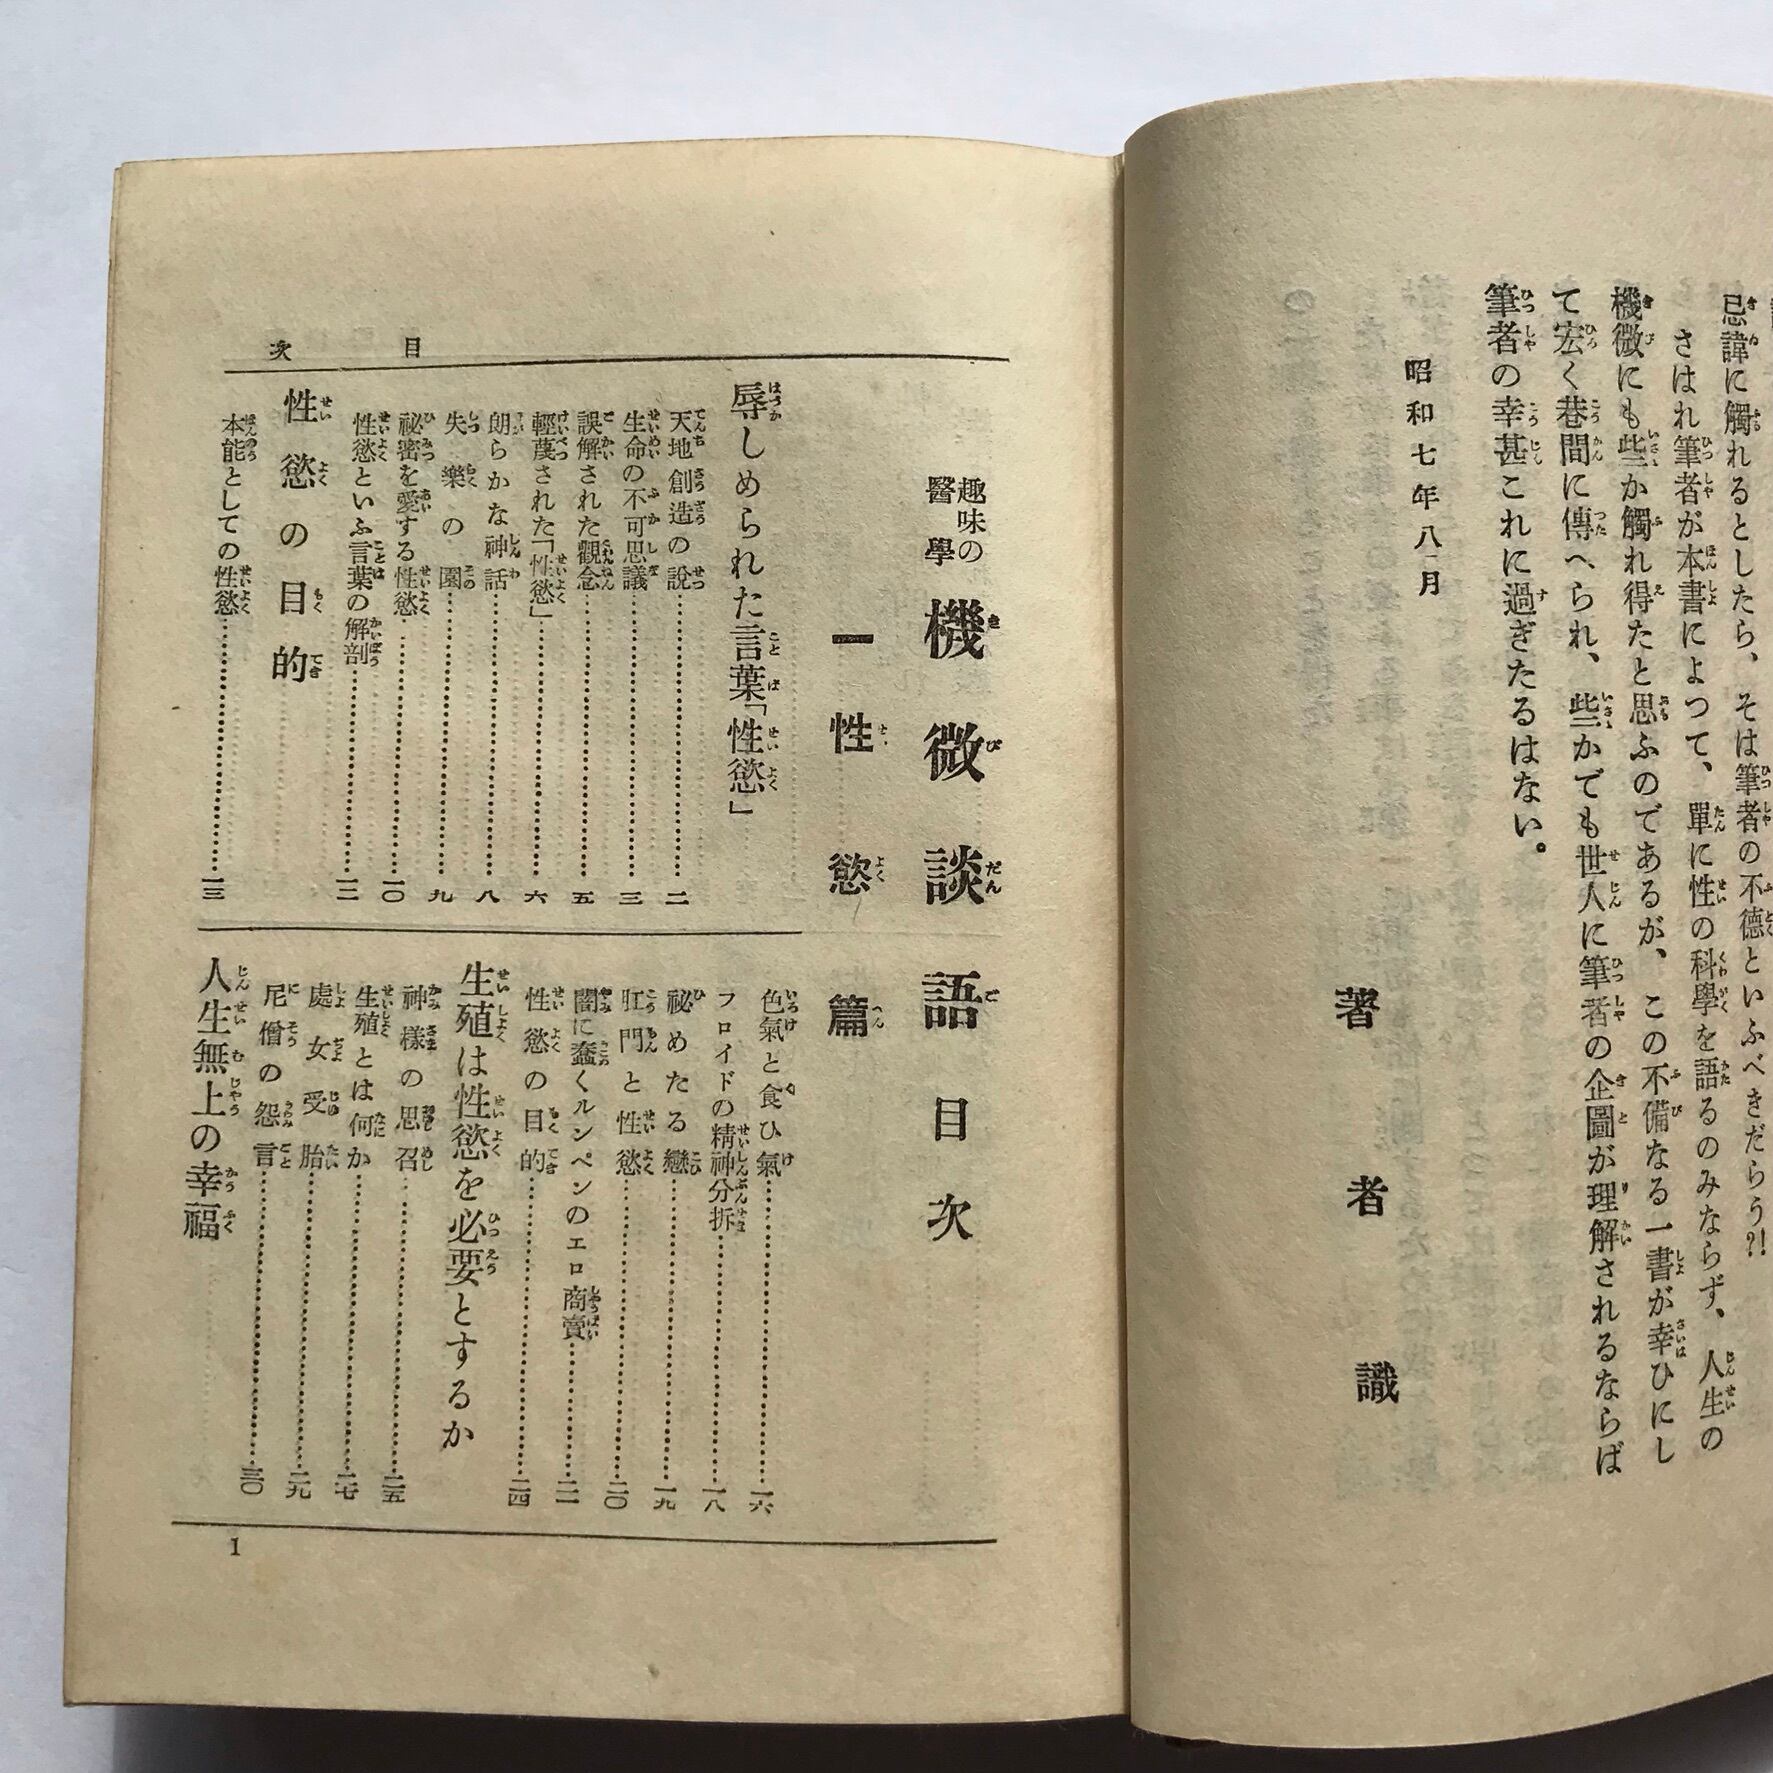 忌諱に觸れるとしたら、そは筆者の不德といふべきだらう?!
さはれ筆者が本書によつて、單に性の科學を語るのみならず、人生の
機微にも些か觸れ得たと思ふのであるが、この不備なる一書が幸ひにし
て宏く巷間に傳へられ、些かでも世人に筆者の企圖が理解されるならば
筆者の幸甚これに過ぎたるはない。
昭和七年八月
著者識
趣味の醫學 機微談語目次
一 性慾篇
辱しめられた言葉「性慾」
天地創造の說 二
生命の不可思議 三
誤解された觀念 五
輕蔑された「性慾」 六
朗らかな神話 八
失樂の園 九
祕密を愛する性慾 一〇
性慾といふ言葉の解剖 一二
性慾の目的
本能としての性慾 一三
色氣と食ひ氣 一六
フロイドの精神分拆 一八
祕めたる戀 一九
肛門と性慾 二〇
闇に蠢くルンペンのエロ商賣 二一
性慾の目的 二四
生殖は性慾を必要とするか
神樣の思召 二五
生殖とは何か 二七
處女受胎 二九
尼僧の怨言 三〇
人生無上の幸福
目次
1